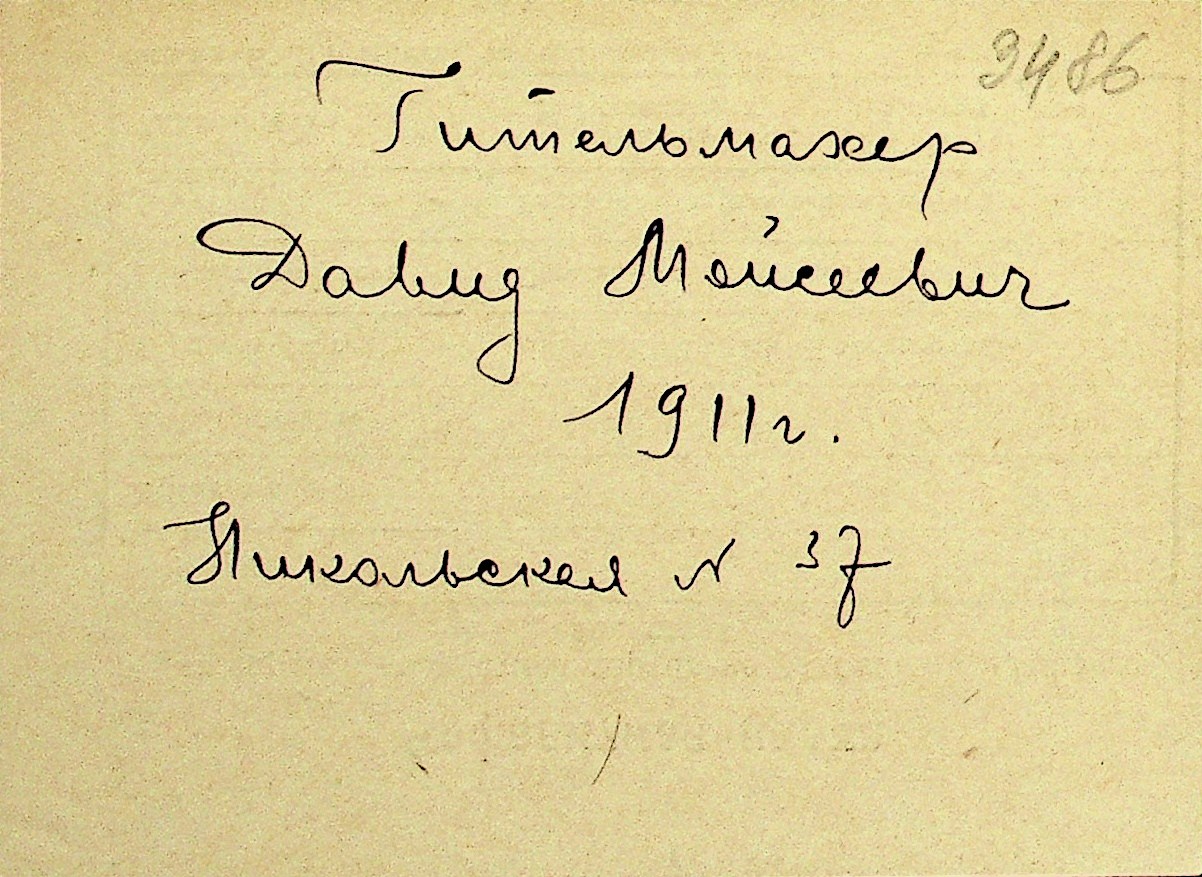 9486
Гительмахер
Давид Мойсеевич
1911г.
Никольская N 37